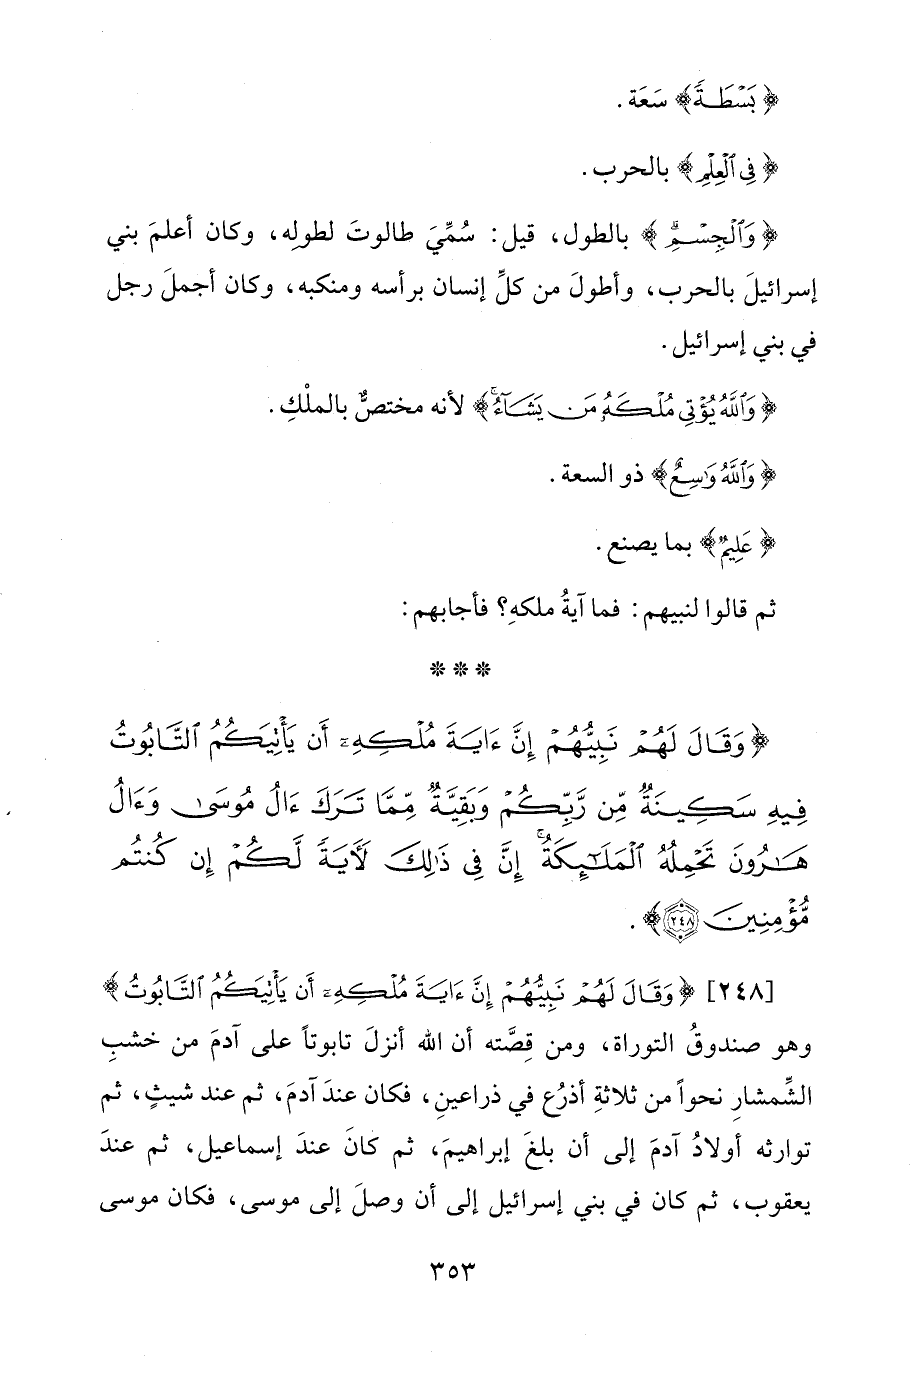 ﴿بَسْطَةً﴾ سَعَة.
﴿فِي ٱلْعِلْمِ﴾ بالحرب.
﴿وَٱلْجِسْمِۖ﴾ بالطول، قيل: سُمِّيَ طالوتَ لطولِه، وكان أعلمَ بني
إسرائيلَ بالحرب، وأطولَ من كلِّ إنسان برأسه ومنكبه، وكان أجملَ رجل
في بني إسرائيل.
﴿وَٱللَّهُ يُؤْتِي مُلْكَهُۥ مَن يَشَآءُۚ﴾ لأنه مختصٌّ بالملْكِ.
﴿وَٱللَّهُ وَٰسِعٌ﴾ ذو السعة.
﴿عَلِيمٌ﴾ بما يصنع.
ثم قالوا لنبيهم: فما آيةُ ملكهِ؟ فأجابهم:
* * *
﴿وَقَالَ لَهُمْ نَبِيُّهُمْ إِنَّ ءَايَةَ مُلْكِهِۦٓ أَن يَأْتِيَكُمُ ٱلتَّابُوتُ
فِيهِ سَكِينَةٌ مِّن رَّبِّكُمْ وَبَقِيَّةٌ مِّمَّا تَرَكَ ءَالُ مُوسَىٰ وَءَالُ
هَٰرُونَ تَحْمِلُهُ ٱلْمَلَٰٓئِكَةُۚ إِنَّ فِي ذَٰلِكَ لَءَايَةً لَّكُمْ إِن كُنتُم
مُّؤْمِنِينَ ٢٤٨﴾.
[٢٤٨] ﴿وَقَالَ لَهُمْ نَبِيُّهُمْ إِنَّ ءَايَةَ مُلْكِهِۦٓ أَن يَأْتِيَكُمُ ٱلتَّابُوتُ﴾
وهو صندوقُ التوراة، ومن قِصَّته أن الله أنزلَ تابوتاً على آدمَ من خشبِ
الشِّمشارِ نحواً من ثلاثةِ أذرُع في ذراعينِ، فكان عندَ آدمَ، ثم عند شيثٍ، ثم
توارثه أولادُ آدمَ إلى أن بلغَ إبراهيمَ، ثم كانَ عندَ إسماعيل، ثم عندَ
يعقوب، ثم كان في بني إسرائيل إلى أن وصلَ إلى موسى، فكان موسى
٣٥٣